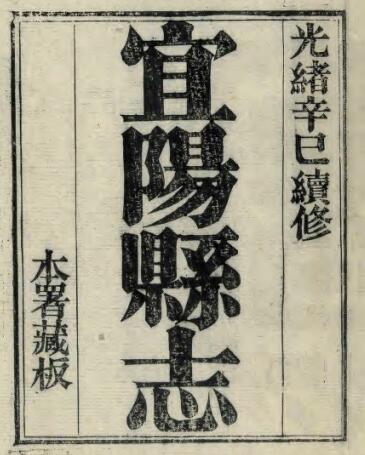 光緒辛巳續修
宜陽縣志
本署藏板